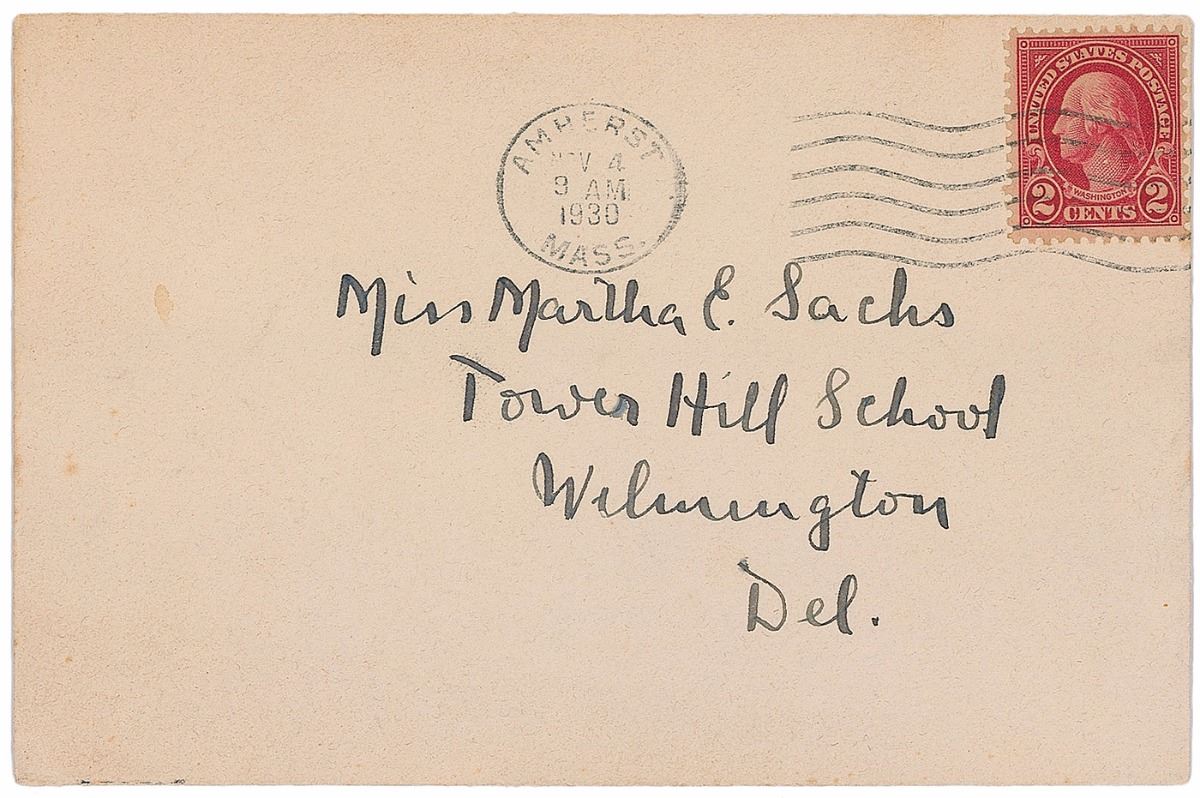 UNITED STATES POSTAGE
WASHINGTON
2 CENTS 2
AMHERST
NOV 4
9 AM
1930
MASS.
Miss Martha E. Sachs
Tower Hill School
Wilmington
Del.